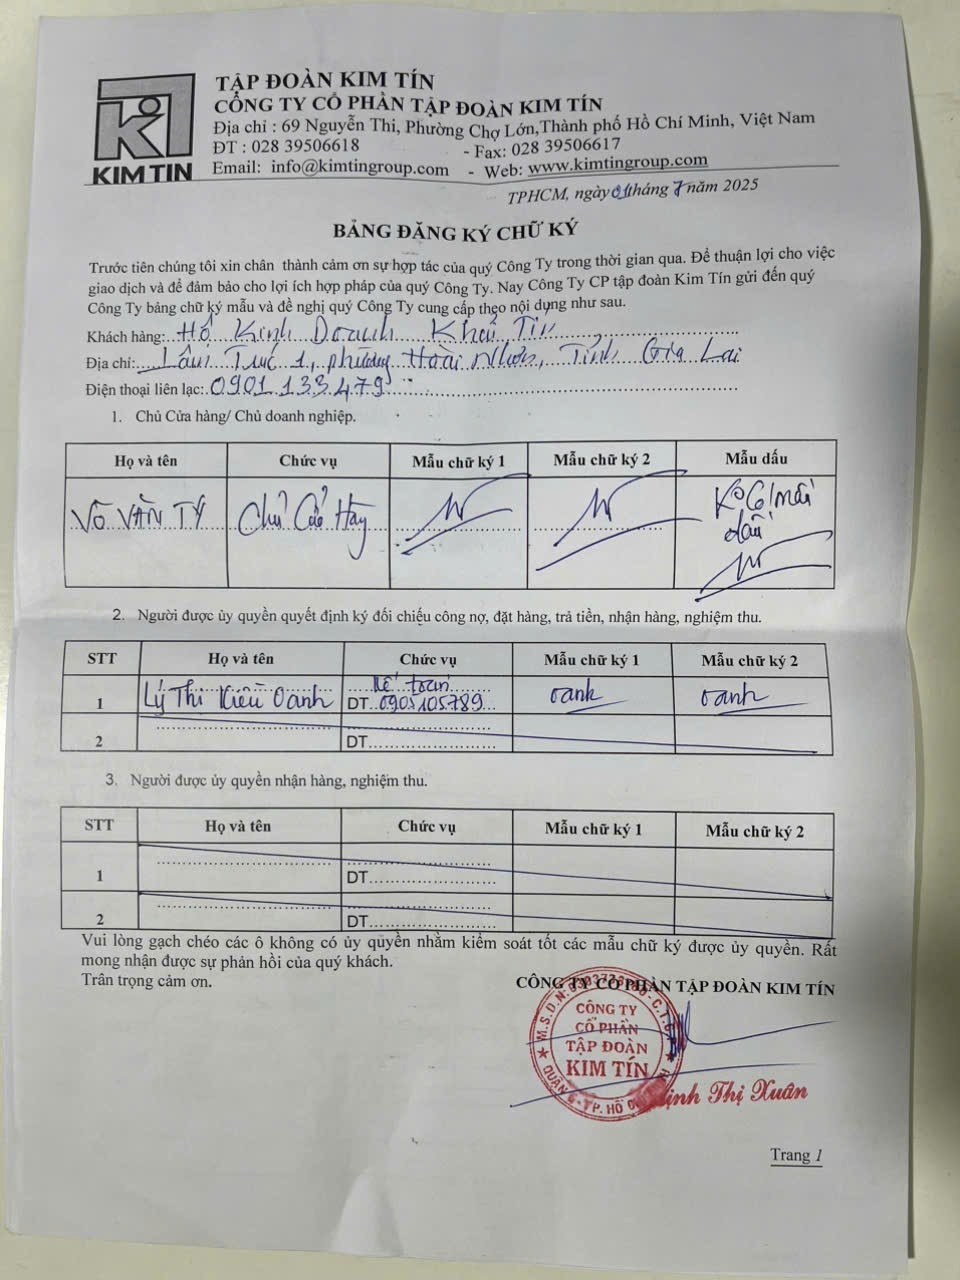 KIM TIN
TẬP ĐOÀN KIM TÍN
CÔNG TY CỔ PHẦN TẬP ĐOÀN KIM TÍN
Địa chỉ : 69 Nguyễn Thi, Phường Chợ Lớn,Thành phố Hồ Chí Minh, Việt Nam
ĐT : 028 39506618 - Fax: 028 39506617
Email: info@kimtingroup.com - Web: www.kimtingroup.com
TPHCM, ngày 01 tháng 7 năm 2025
BẢNG ĐĂNG KÝ CHỮ KÝ
Trước tiên chúng tôi xin chân thành cảm ơn sự hợp tác của quý Công Ty trong thời gian qua. Để thuận lợi cho việc
giao dịch và để đảm bảo cho lợi ích hợp pháp của quý Công Ty. Nay Công Ty CP tập đoàn Kim Tín gửi đến quý
Công Ty bảng chữ ký mẫu và đề nghị quý Công Ty cung cấp theo nội dung như sau.
Khách hàng: Hộ Kinh Doanh Khải Tín
Địa chỉ: Lâm Trúc 1, phường Hoài Nhơn, Tỉnh Gia Lai
Điện thoại liên lạc: 0901 133 479
1. Chủ Cửa hàng/ Chủ doanh nghiệp.
Họ và tên Chức vụ Mẫu chữ ký 1 Mẫu chữ ký 2 Mẫu dấu
VÕ VĂN TÝ Chủ Cửa Hàng Ko Có mẫu
dấu
2. Người được ủy quyền quyết định ký đối chiếu công nợ, đặt hàng, trả tiền, nhận hàng, nghiệm thu.
STT Họ và tên Chức vụ Mẫu chữ ký 1 Mẫu chữ ký 2
1 Lý Thị Kiều Oanh Kế toán oanh oanh
DT 0905105789
2 DT
3. Người được ủy quyền nhận hàng, nghiệm thu.
STT Họ và tên Chức vụ Mẫu chữ ký 1 Mẫu chữ ký 2
1 DT
2 DT
Vui lòng gạch chéo các ô không có ủy quyền nhằm kiểm soát tốt các mẫu chữ ký được ủy quyền. Rất
mong nhận được sự phản hồi của quý khách.
Trân trọng cảm ơn.
CÔNG TY CỔ PHẦN TẬP ĐOÀN KIM TÍN
CÔNG TY
CỔ PHẦN
TẬP ĐOÀN
KIM TÍN
Thị Xuân
Trang 1